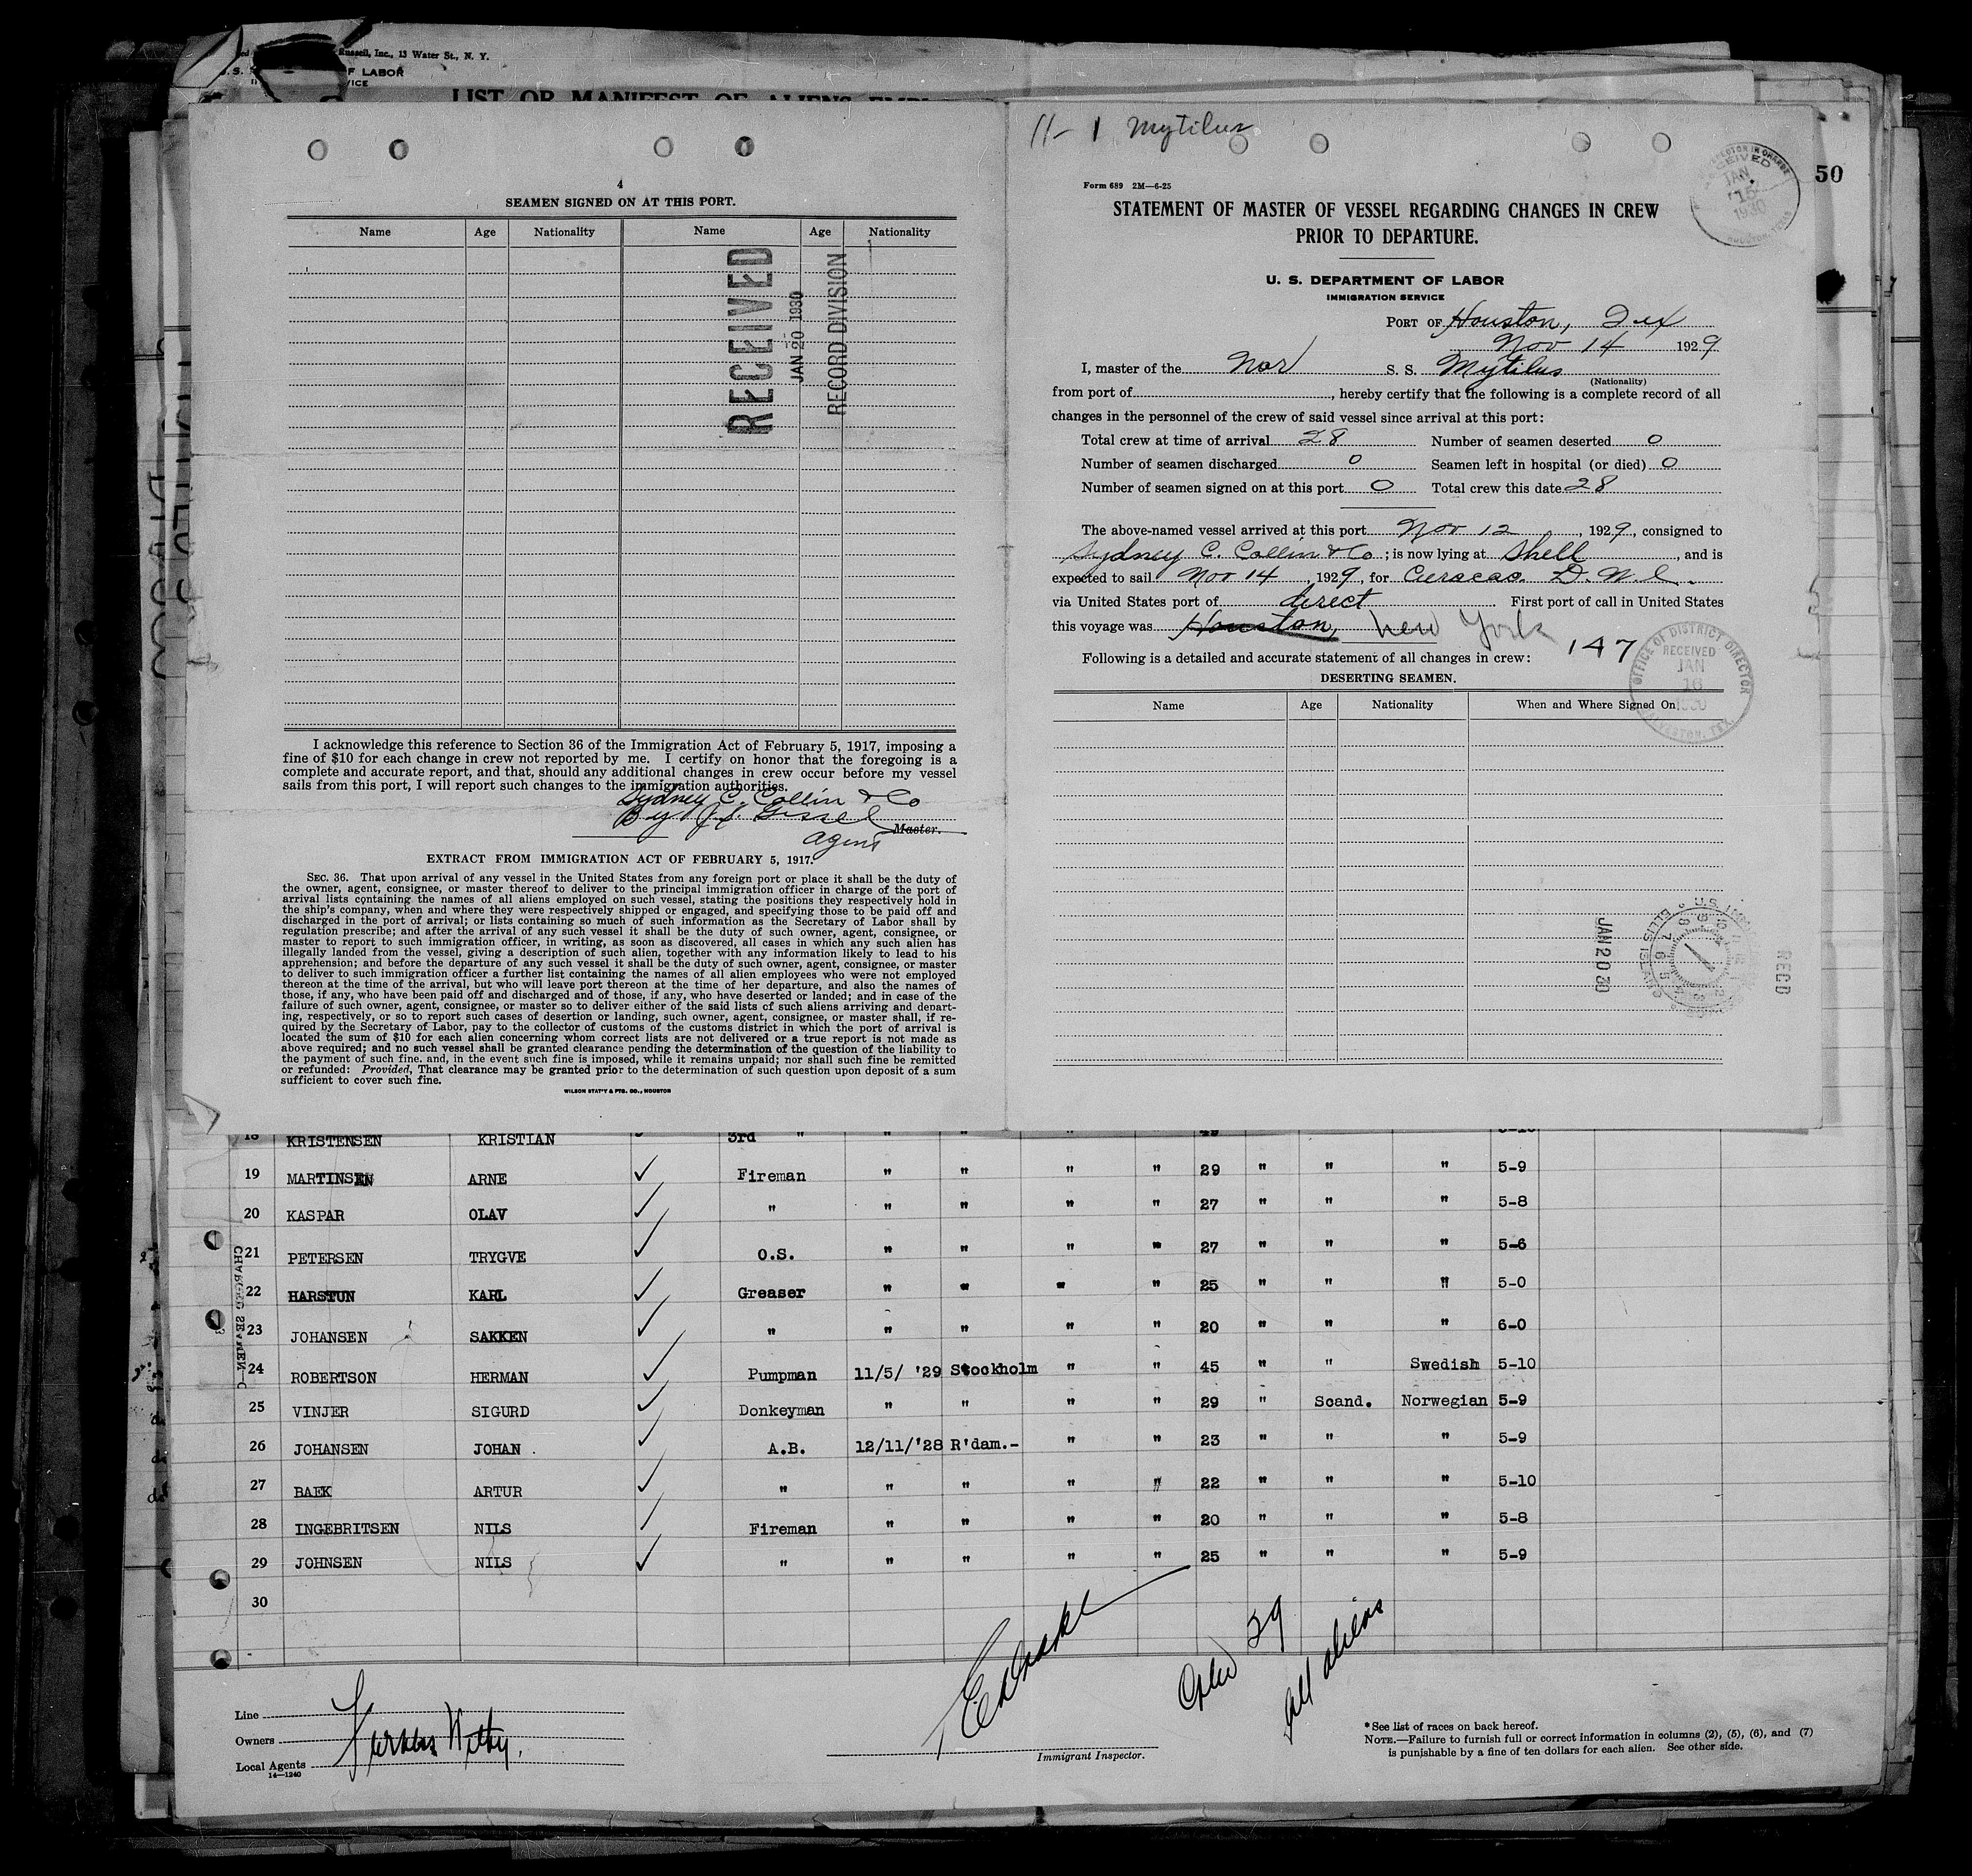 Russell, Inc., 13 Water St., N. Y.
F LABOR
LIST OR MANIFEST OF ALIENS
50
4
SEAMEN SIGNED ON AT THIS PORT.
Name Age Nationality Name Age Nationality
RECEIVED
JAN 20 1930
RECORD DIVISION
I acknowledge this reference to Section 36 of the Immigration Act of February 5, 1917, imposing a
fine of $10 for each change in crew not reported by me. I certify on honor that the foregoing is a
complete and accurate report, and that, should any additional changes in crew occur before my vessel
sails from this port, I will report such changes to the immigration authorities.
Sydney C. Collin & Co
By Gissel
Master.
Agent
EXTRACT FROM IMMIGRATION ACT OF FEBRUARY 5, 1917.
SEC. 36. That upon arrival of any vessel in the United States from any foreign port or place it shall be the duty of
the owner, agent, consignee, or master thereof to deliver to the principal immigration officer in charge of the port of
arrival lists containing the names of all aliens employed on such vessel, stating the positions they respectively hold in
the ship's company, when and where they were respectively shipped or engaged, and specifying those to be paid off and
discharged in the port of arrival; or lists containing so much of such information as the Secretary of Labor shall by
regulation prescribe; and after the arrival of any such vessel it shall be the duty of such owner, agent, consignee, or
master to report to such immigration officer, in writing, as soon as discovered, all cases in which any such alien has
illegally landed from the vessel, giving a description of such alien, together with any information likely to lead to his
apprehension; and before the departure of any such vessel it shall be the duty of such owner, agent, consignee, or master
to deliver to such immigration officer a further list containing the names of all alien employees who were not employed
thereon at the time of the arrival, but who will leave port thereon at the time of her departure, and also the names of
those, if any, who have been paid off and discharged and of those, if any, who have deserted or landed; and in case of the
failure of such owner, agent, consignee, or master so to deliver either of the said lists of such aliens arriving and depart-
ing, respectively, or so to report such cases of desertion or landing, such owner, agent, consignee, or master shall, if re-
quired by the Secretary of Labor, pay to the collector of customs of the customs district in which the port of arrival is
located the sum of $10 for each alien concerning whom correct lists are not delivered or a true report is not made as
above required; and no such vessel shall be granted clearance pending the determination of the question of the liability to
the payment of such fine. and, in the event such fine is imposed, while it remains unpaid; nor shall such fine be remitted
or refunded: Provided, That clearance may be granted prior to the determination of such question upon deposit of a sum
sufficient to cover such fine.
WILSON STAT'Y & PTG. CO., HOUSTON
11- 1 Mytilus
Form 689 2M—6-25
RECEIVED JAN 15 1930
STATEMENT OF MASTER OF VESSEL REGARDING CHANGES IN CREW
PRIOR TO DEPARTURE.
U. S. DEPARTMENT OF LABOR
IMMIGRATION SERVICE
PORT OF Houston, Tex
Nov 14 1929
I, master of the Nor S. S. Mytilus
(Nationality)
from port of , hereby certify that the following is a complete record of all
changes in the personnel of the crew of said vessel since arrival at this port:
Total crew at time of arrival 28 Number of seamen deserted 0
Number of seamen discharged 0 Seamen left in hospital (or died) 0
Number of seamen signed on at this port 0 Total crew this date 28
The above-named vessel arrived at this port Nov 12, 1929, consigned to
Sydney C. Collin & Co; is now lying at Shell, and is
expected to sail Nov 14, 1929, for Curacao. D. W. I.
via United States port of direct First port of call in United States
this voyage was Houston, New York
147
Following is a detailed and accurate statement of all changes in crew:
OFFICE OF DISTRICT DIRECTOR RECEIVED JAN 16 1930 GALVESTON, TEX.
DESERTING SEAMEN.
Name Age Nationality When and Where Signed On
JAN 20 30
REC'D
18 KRISTENSEN KRISTIAN 3rd "
19 MARTINSEN ARNE Fireman " " " " 29 " " " 5-9
20 KASPAR OLAV " " " " " 27 " " " 5-8
21 PETERSEN TRYGVE O.S. " " " " 27 " " " 5-6
22 HARSTUN KARL Greaser " " " " 25 " " " 5-0
23 JOHANSEN SAKKEN " " " " " 20 " " " 6-0
24 ROBERTSON HERMAN Pumpman 11/5/ '29 Stockholm " " 45 " " Swedish 5-10
25 VINJER SIGURD Donkeyman " " " " 29 " Scand. Norwegian 5-9
26 JOHANSEN JOHAN . A.B. 12/11/'28 R'dam.- " " 23 " " " 5-9
27 BAEK ARTUR " " " " " 22 " " " 5-10
28 INGEBRITSEN NILS Fireman " " " " 20 " " " 5-8
29 JOHNSEN NILS " " " " " 25 " " " 5-9
30
29
All aliens
Line
Owners
Local Agents
14—1240
Immigrant Inspector.
* See list of races on back hereof.
NOTE.—Failure to furnish full or correct information in columns (2), (5), (6), and (7)
is punishable by a fine of ten dollars for each alien. See other side.